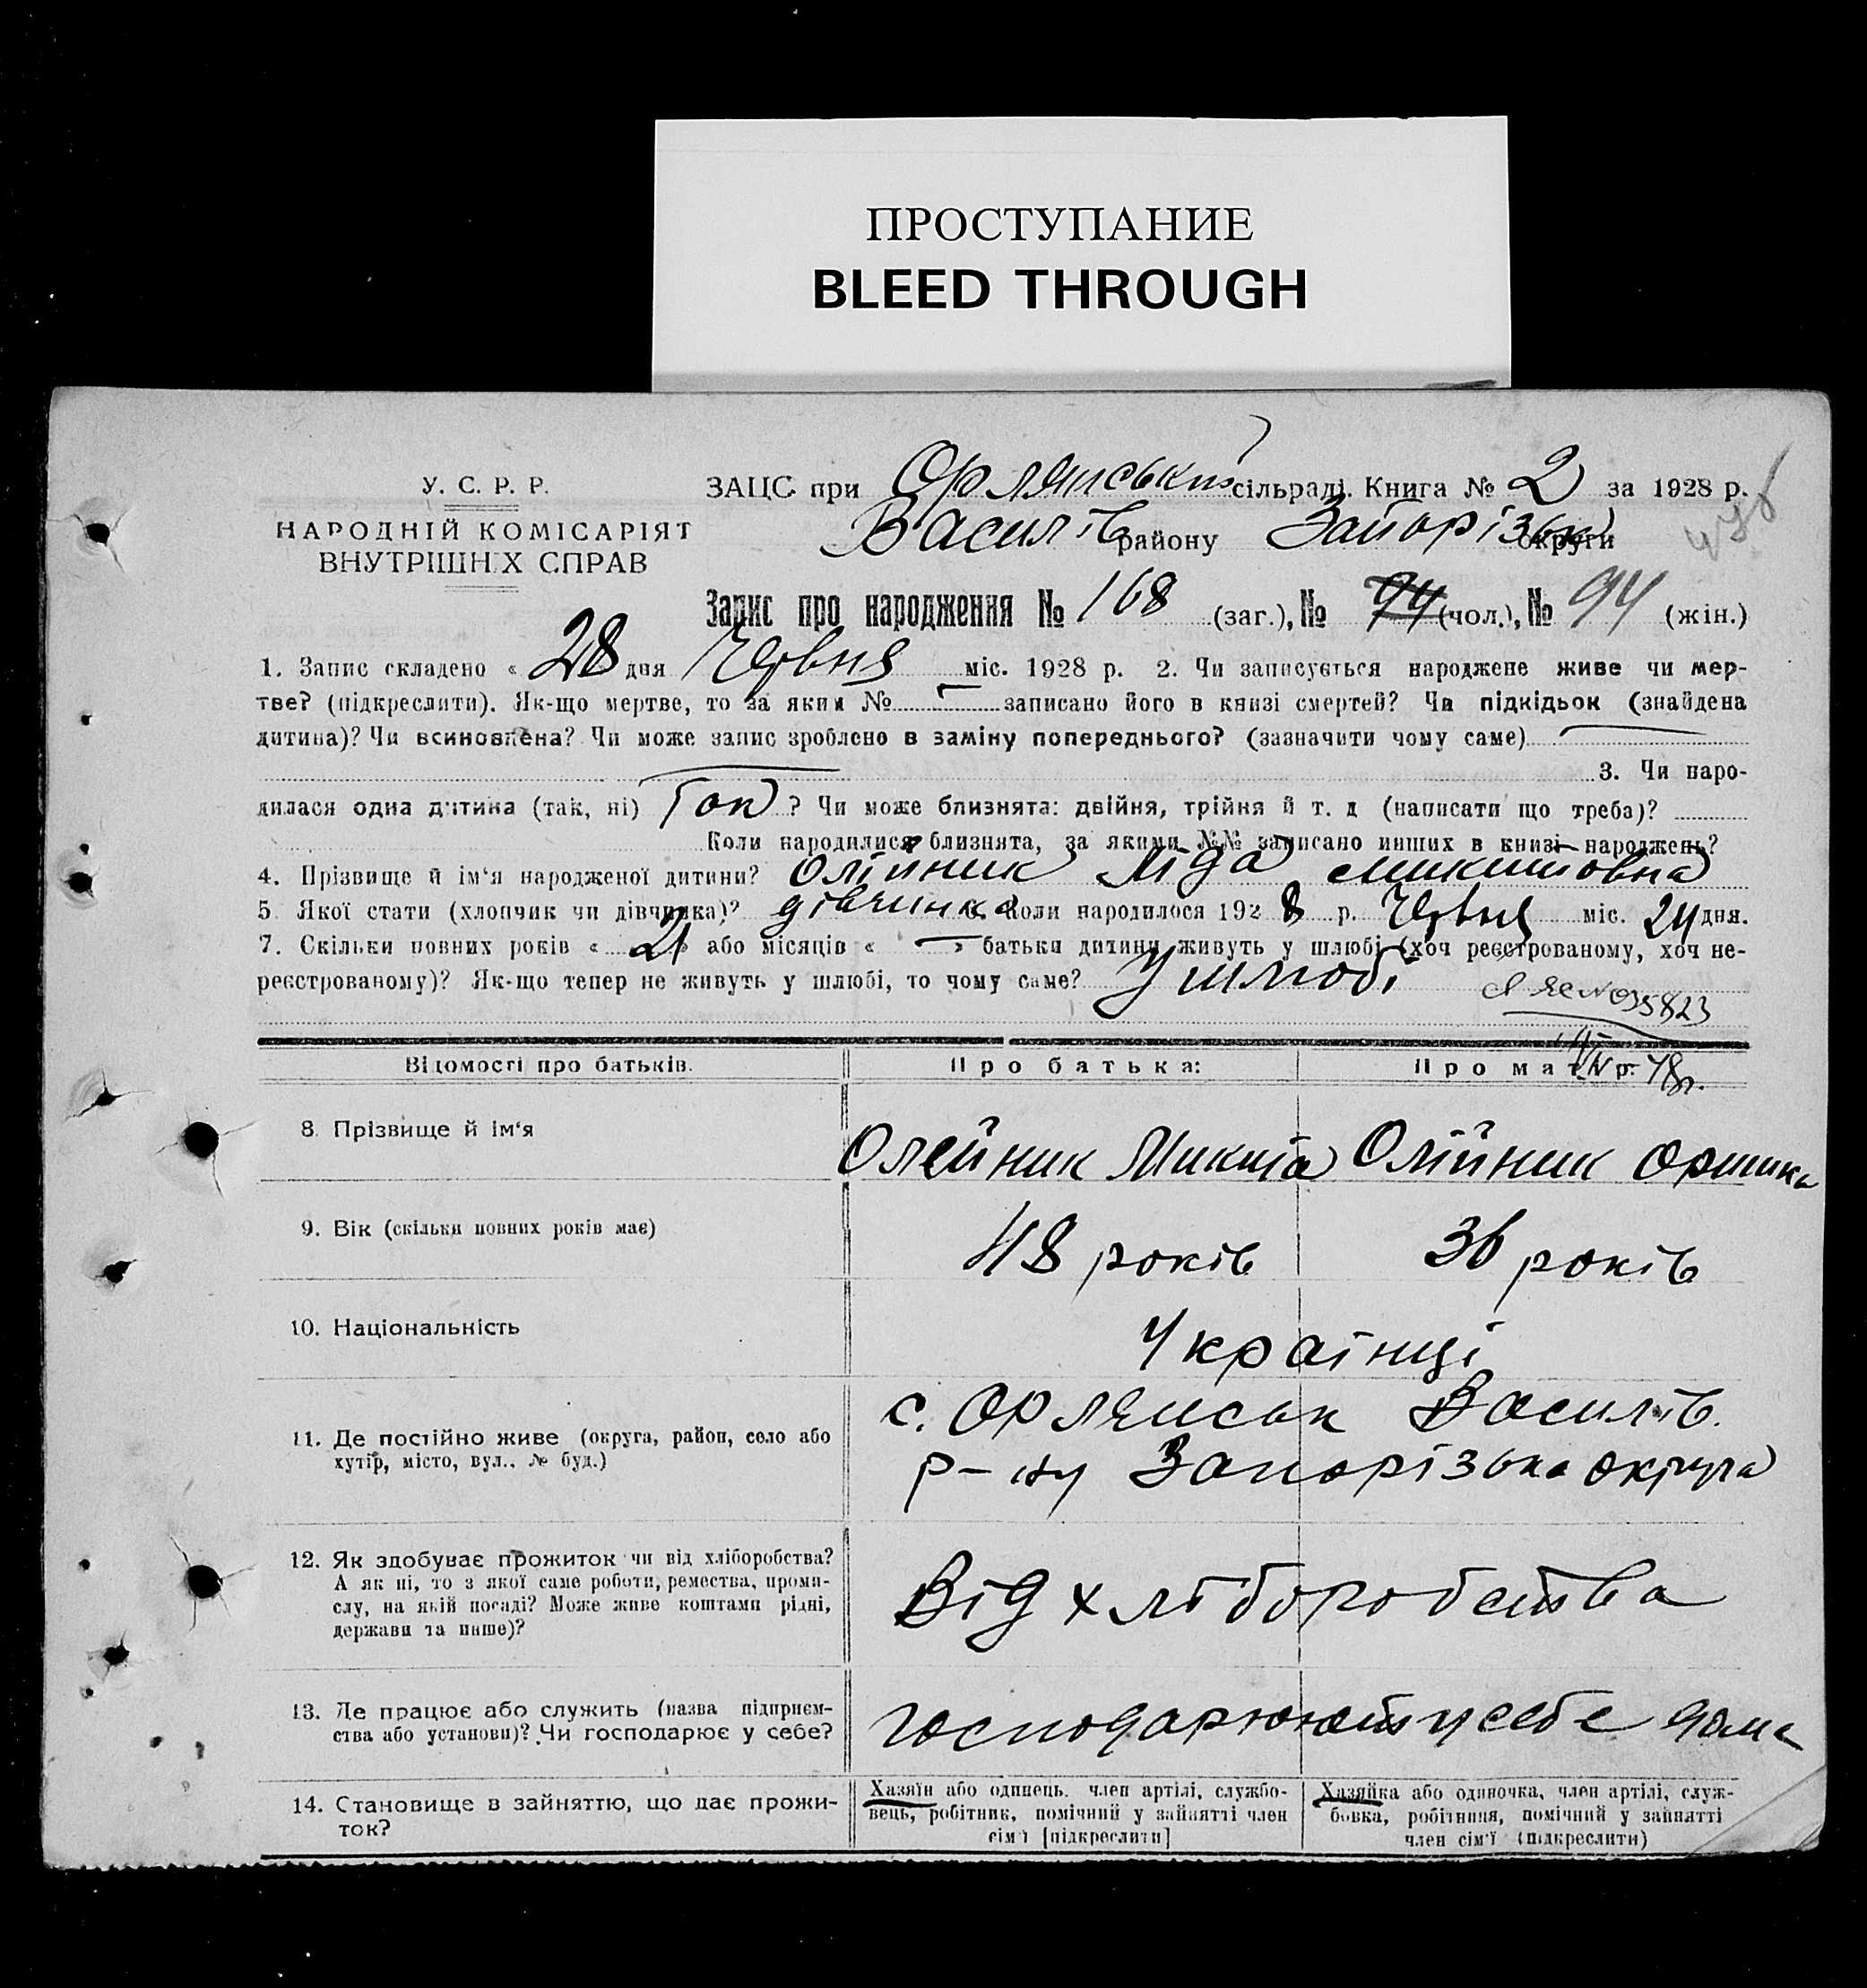 ПРОСТУПАНИЕ
BLEED THROUGH
У. С. Р. Р.
НАРОДНІЙ КОМІСАРІЯТ
ВНУТРІШНІХ СПРАВ
ЗАЦС при Орлянській сільраді. Книга № 2 за 1928 р.
Василів району Запорізьк округи
Запис про народження № 168 (заг.), № 94 (чол.), № 94 (жін.)
1. Запис складено « 28 дня Червня міс. 1928 р. 2. Чи записується народжене живе чи мер-
тве? (підкреслити). Як-що мертве, то за яким № записано його в книзі смертей? Чи підкідьок (знайдена
дитина)? Чи всиновлена? Чи може запис зроблено в заміну попереднього? (зазначити чому саме)
3. Чи наро-
дилася одна дитина (так, ні) Так ? Чи може близнята: двійня, трійня й т. д (написати що треба)?
Коли народилися близнята, за якими №№ записано инших в книзі народжень?
4. Прізвище й ім'я народженої дитини? Олійник Ліда Микитовна
5 Якої стати (хлопчик чи дівчинка)? дівчинка 6. Коли народилося 1928 р. Червня міс. 24 дня.
7. Скільки повних років « 21 » або місяців « — » батьки дитини живуть у шлюбі (хоч реєстрованому, хоч не-
реєстрованому)? Як-що тепер не живуть у шлюбі, то чому саме? У шлюбі
035823
48р.
Відомості про батьків. Про батька: Про матір:
8. Прізвище й ім'я Олейник Микита Олійник Оришка
9. Вік (скільки повних років має) 48 років 36 років
10. Національність Українці
11. Де постійно живе (округа, район, село або
хутір, місто, вул., № буд.)
с. Орлянськ Василів.
р-ну Запорізька округа
12. Як здобуває прожиток чи від хліборобства?
А як ні, то з якої саме роботи, ремества, проми-
слу, на якій посаді? Може живе коштами рідні,
держави та инше)?
Від хліборобства
13. Де працює або служить (назва підприєм-
ства або установи)? Чи господарює у себе?
господарюють у себе дома
14. Становище в зайняттю, що дає прожи-
ток?
Хазяїн або одинець, член артілі, службо-
вець, робітник, помічний у зайнятті член
сім'ї [підкреслити]
Хазяйка або одиночка, член артілі, служ-
бовка, робітниця, помічний у зайнятті
член сім'ї (підкреслити)